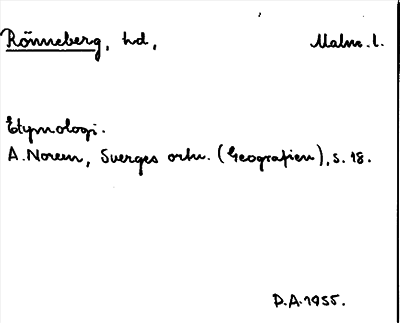 Rönneberg, hd, Malm. l.
Etymologi.
A. Noreen, Sverges ortn. (Geografien), s. 18.
D.A. 1955.